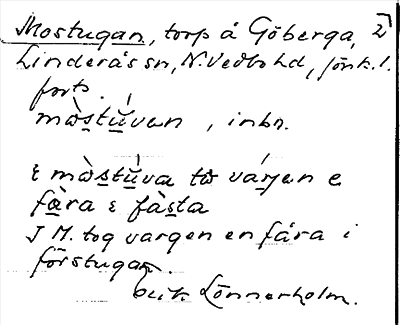 Mostugan, torp å Göberga, 2
Linderås sn, N. Vedbo hd, Jönk. l.
forts.
mòs̲tú̲van , inbn.
ε mòs̲tú̲va tω várjen e
fà̲ra ε fàs̲ta
I M. tog vargen en fåra i
förstugan.
Erik Lönnerholm.